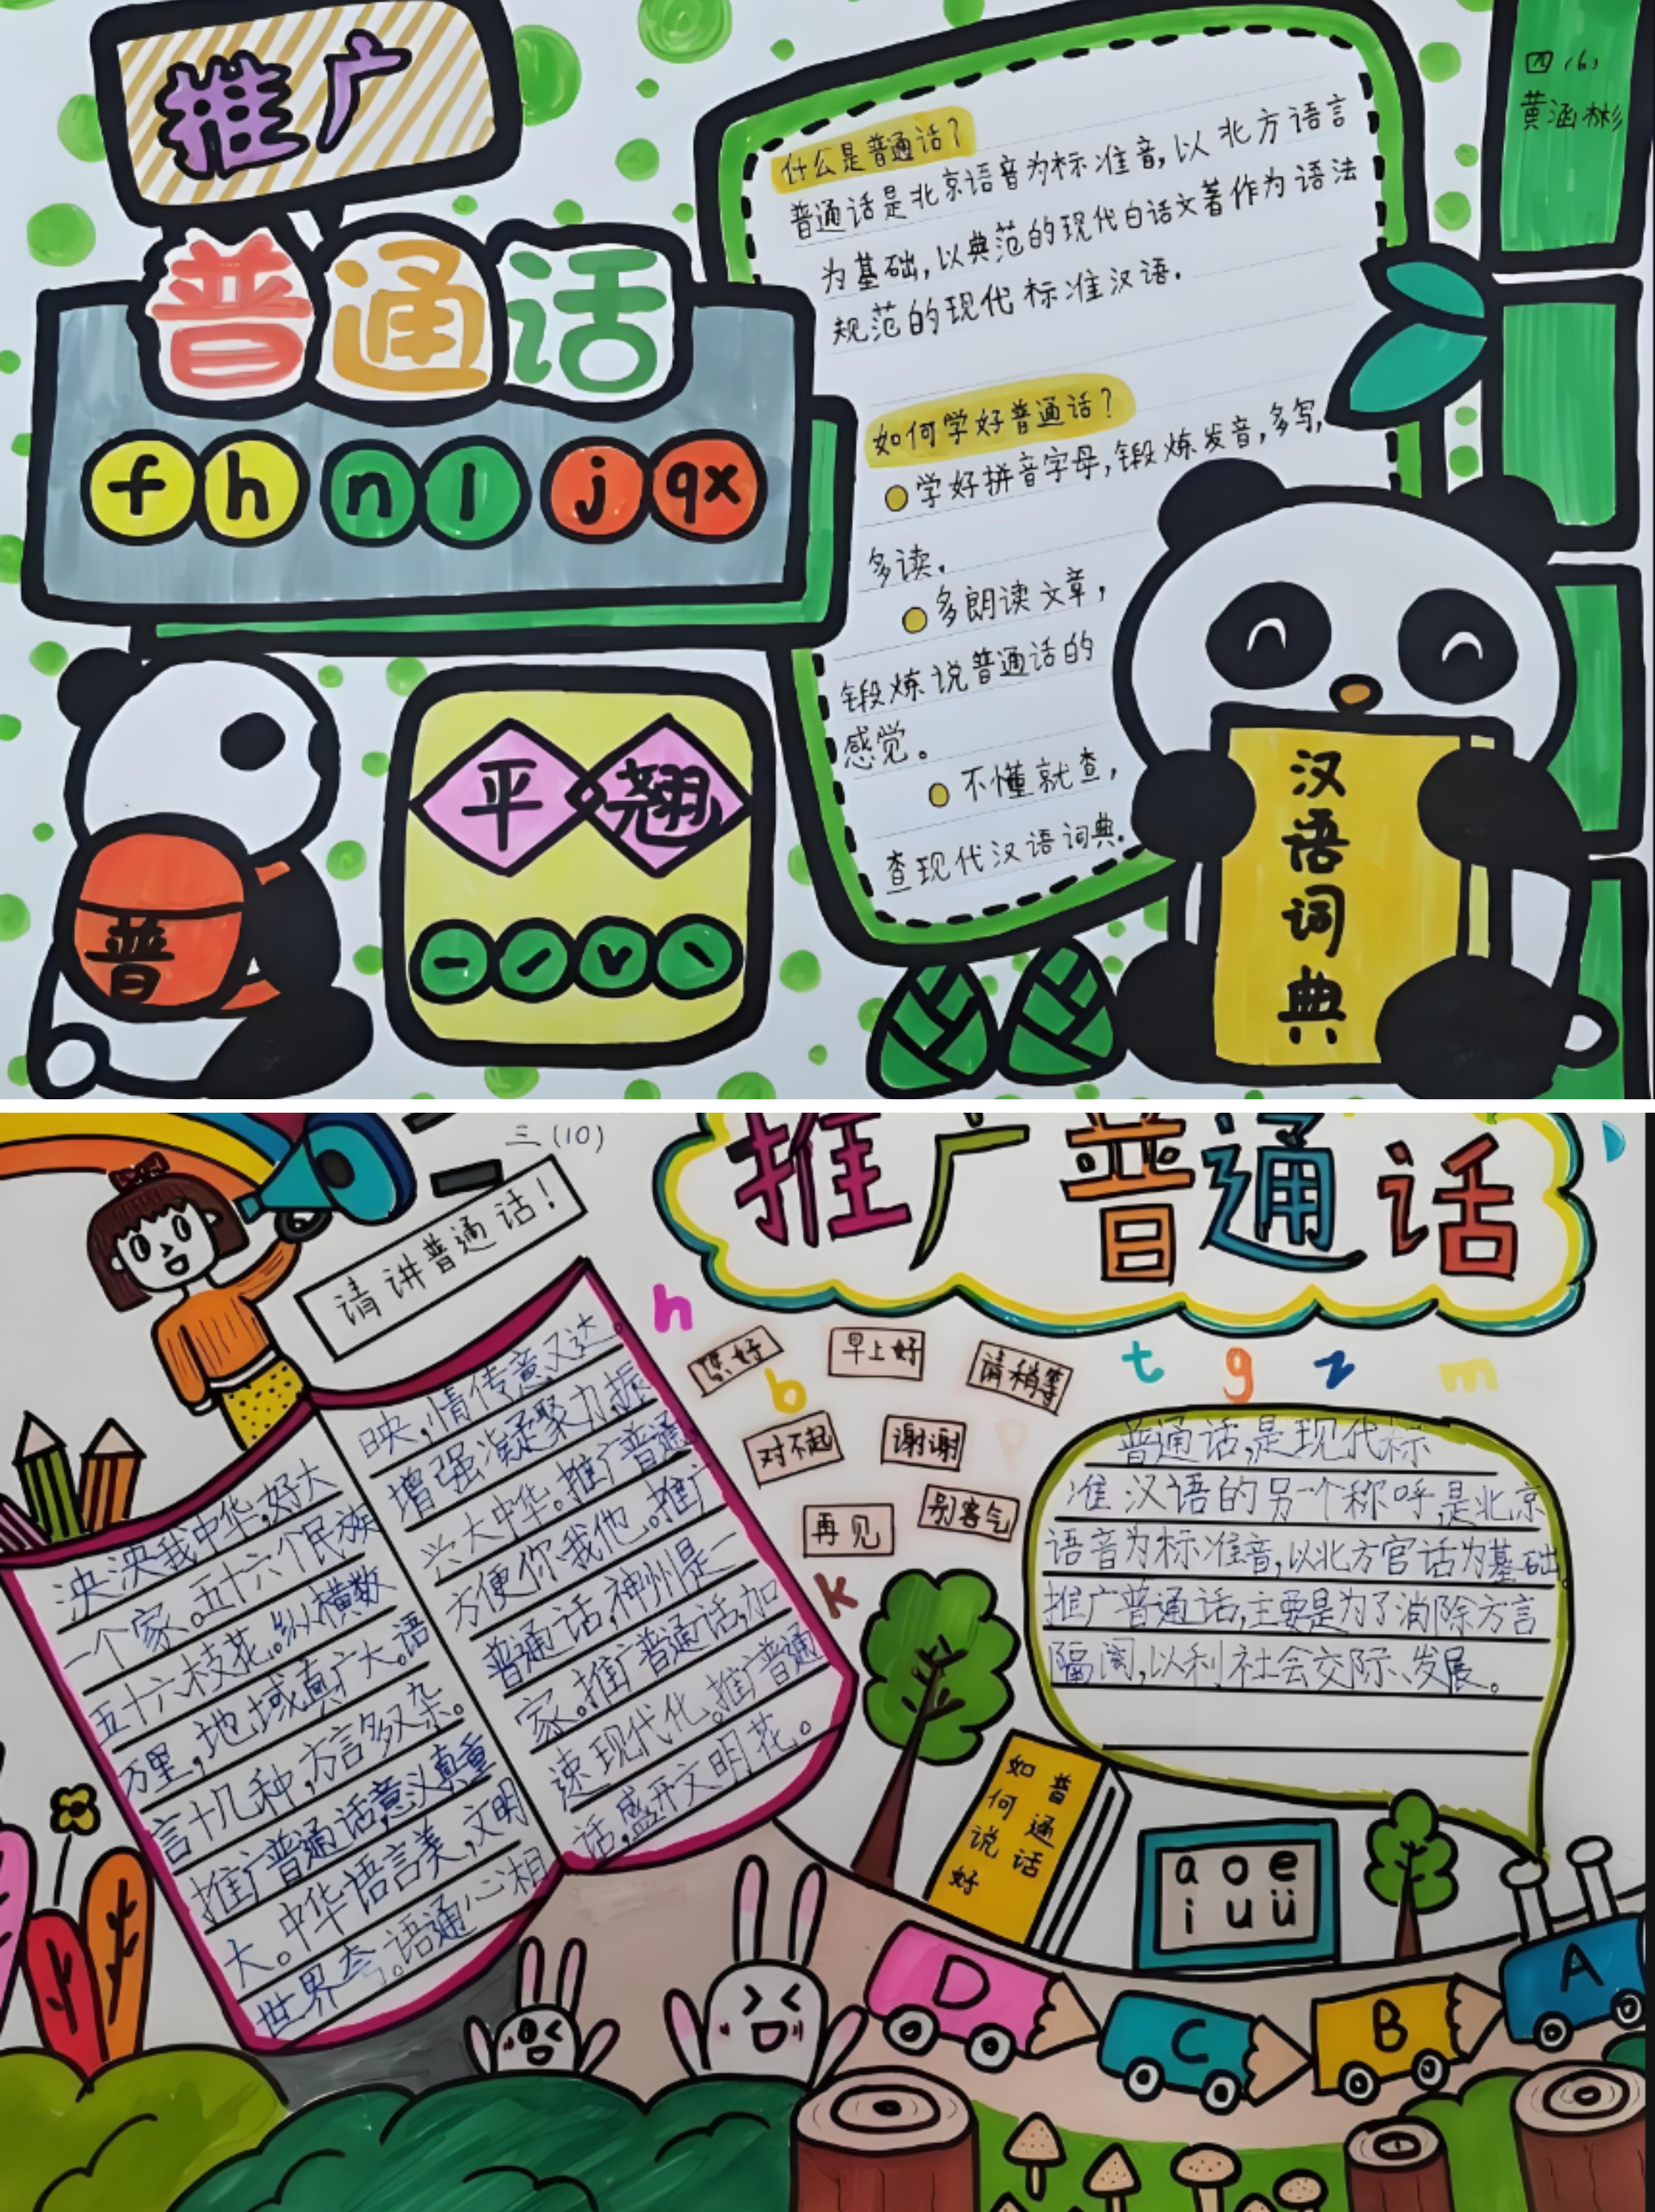 推广
普通话
f h n l j qx
平 翘
普
四(6)
黄涵彬
什么是普通话?
普通话是北京语音为标准音,以北方语言
为基础,以典范的现代白话文著作为语法
规范的现代标准汉语.
如何学好普通话?
学好拼音字母,锻炼发音,多写,
多读.
多朗读文章,
锻炼说普通话的
感觉。
不懂就查,
查现代汉语词典.
汉语词典
三(10)
请讲普通话!
推广普通话
泱泱我中华,好大
一个家。五十六个民族
五十六枝花。纵横数
万里,地域真广大。语
言十几种,方言多又杂。
推广普通话,意义真重
大。中华语言美,文明
世界夸。语通心相
映,情传意又达。
增强凝聚力,振
兴大中华。推广普通
方便你我他。推广
普通话,神州是一
家。推广普通话,加
速现代化。推广普通
话,盛开文明花。
h
您好
早上好
请稍等
b
对不起
谢谢
p
再见
别客气
k
t g z m
普通话,是现代标
准汉语的另一个称呼,是北京
语音为标准音,以北方官话为基础。
推广普通话,主要是为了消除方言
隔阂,以利社会交际、发展。
如何说好
普通话
a o e
i u ü
D C B A